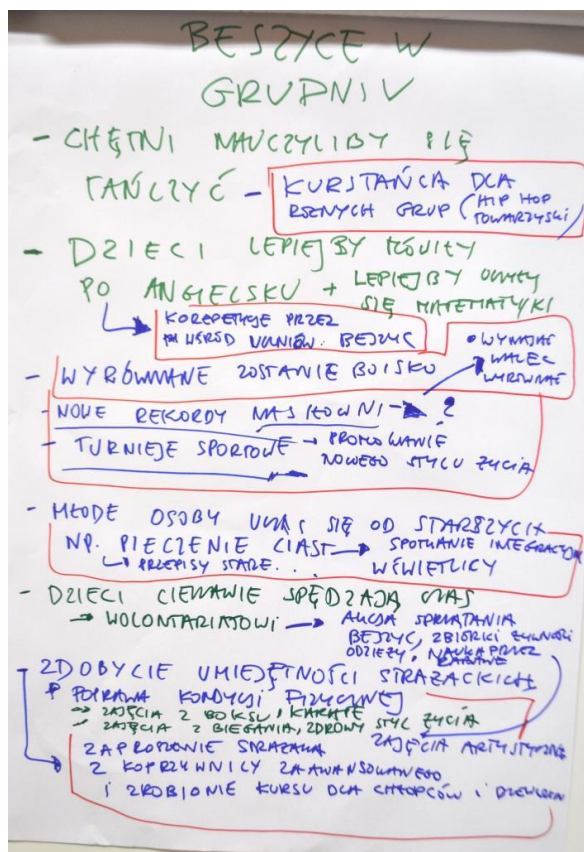 BESZYCE W
GRUDNIU
- CHĘTNI NAUCZYLIBY SIĘ
TAŃCZYĆ - KURS TAŃCA DLA
RÓŻNYCH GRUP (HIP HOP
TOWARZYSKI)
- DZIECI LEPIEJ BY MÓWIŁY
PO ANGIELSKU + LEPIEJ BY UMIAŁY
SIĘ MATEMATYKI
KOREPETYCJE PRZEZ
WŚRÓD UCZNIÓW. BESZYC
- WYRÓWNANE ZOSTANIE BOISKO
• WYNAJĄĆ
WALEC
WYRÓWNAĆ
- NOWE REKORDY NA SIŁOWNI → ?
- TURNIEJE SPORTOWE → PROMOWANIE
NOWEGO STYLU ŻYCIA
- MŁODE OSOBY UCZĄ SIĘ OD STARSZYCH
NP. PIECZENIE CIAST → SPOTKANIE INTEGRACYJNE
↳ PRZEPISY STARE.. W ŚWIETLICY
- DZIECI CIEKAWIE SPĘDZAJĄ CZAS
→ WOLONTARIATOWI → AKCJA SPRZĄTANIA
BESZYC, ZBIÓRKI ŻYWNOŚCI
ODZIEŻY, NAUKA PRZEZ
ZABAWĘ
- ZDOBYCIE UMIEJĘTNOŚCI STRAŻACKICH
POPRAWA KONDYCJI FIZYCZNEJ
→ ZAJĘCIA Z BOKSU, KARATE
→ ZAJĘCIA Z BIEGANIA, ZDROWY STYL ŻYCIA
ZAJĘCIA ARTYSTYCZNE
ZAPROSZENIE STRAŻAKA
Z KOPRZYWNICY ZAAWANSOWANEGO
I ZROBIONIE KURSU DLA CHŁOPCÓW I DZIEWCZYN